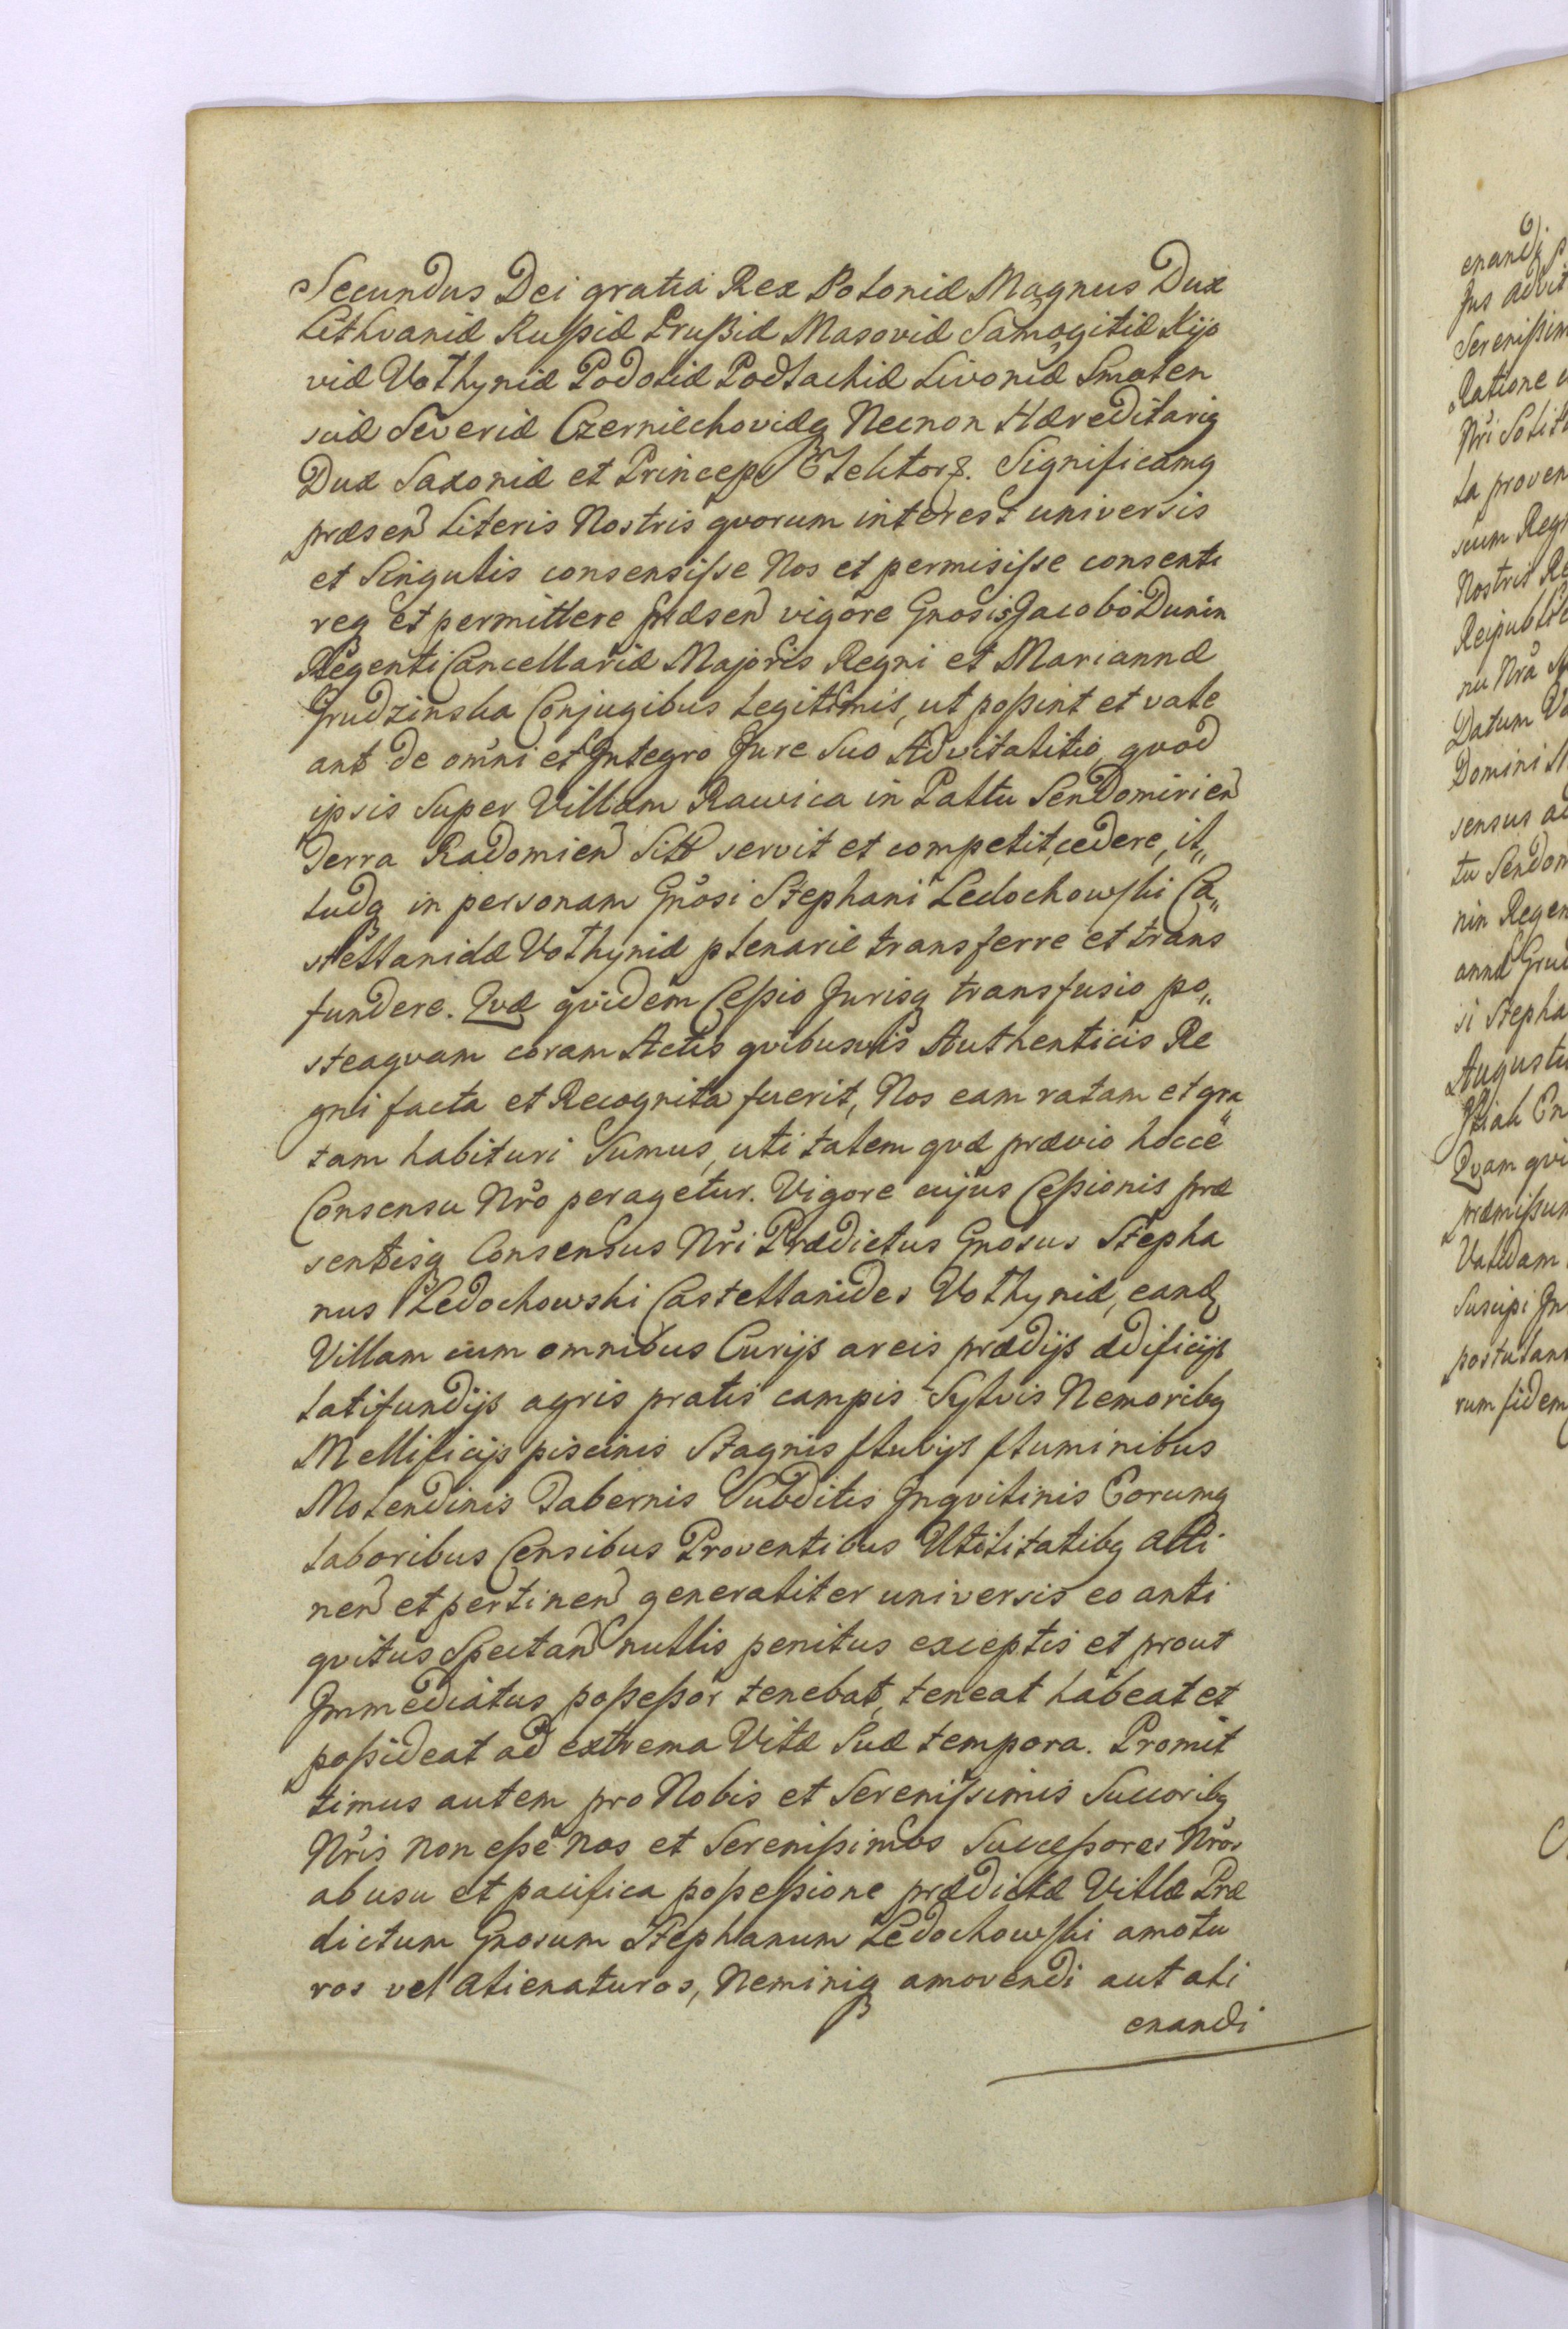 Secundus Dei gratia Rex Poloniæ Magnus Dux
Lithvaniæ Russiæ Prussiæ Masoviæ Samogitiæ Kijo
viæ Volhyniæ Podoliæ Podlachiæ Livoniæ Smolen
sciæ Severiæ Czerniechoviæq Necnon Hæreditariq
Dux Saxoniæ et Princeps Elector &. Significamq
præsen Literis Nostris qvorum interest universis
et Singulis consensisse Nos et permisisse consenti
req et permittere præsen vigore Gnosis Jacobo Dunin
Regenti Cancellariæ Majoris Regni et Mariannæ
Grudzinska Conjugibus Legitimis, ut possint et vale
ant de omni et Integro Jure Suo Advitalitio, qvod
ipsis Super Villam Rawica in Pallu Sendomirien
Terra Radomien Sitt servit et competit, cedere, il„
ludq in personam Gnosi Stephani Ledochowski Ca„
stellanidæ Volhyniæ plenarie transferre et trans
fundere. Qvæ qvidem Cessio Jurisq transfusio po„
steaqvam coram Actis qvibusvis Authenticis Re
gni facta et Recognita fuerit, Nos eam ratam et gra„
tam habituri Sumus, uti talem qvæ prævio hocce
Consensu Nro peragetur. Vigore cujus Cessionis præ
sentisq Consensus Nri Prædictus Gnosus Stepha
nus Ledochowski Castellanides Volhyniæ, eand
Villam cum omnibus Curijs areis prædijs ædificijs
latifundijs agris pratis campis Sylvis Nemoribq
Mellificijs piscinis Stagnis fluvijs fluminibus
Molendinis Tabernis Subditis Inqvilinis Eorumq
laboribus Censibus Proventibus Utilitatibq atti
nen et pertinen generaliter universis eo anti
qvitus Spectan nullis penitus exceptis et prout
Immediatus possessor tenebat, teneat habeat et
possideat ad extrema Vitæ Suæ tempora. Promit
timus autem pro Nobis et Serenissimis Succoribq
Nris non esse nos et Serenissimos Successores Nros
ab usu et pacifica possessione prædictæ Villæ Præ
dictum Gnosum Stephanum Ledochowski amotu
ros vel alienaturos, Neminiq amovendi aut ali
enandi
enandi
Jus advit
Serenissim
Ratione
Nri Solit
La proven
scum Reg
Nostris Re
Reipubl
nu Nra
Datum
Domini
sensus ad
tu Sendom
nin Regen
annæ Grud
si Stepha
Augustu
Qvam qvi
præmissum
Validam
Suscipi
postulan
rum fidem